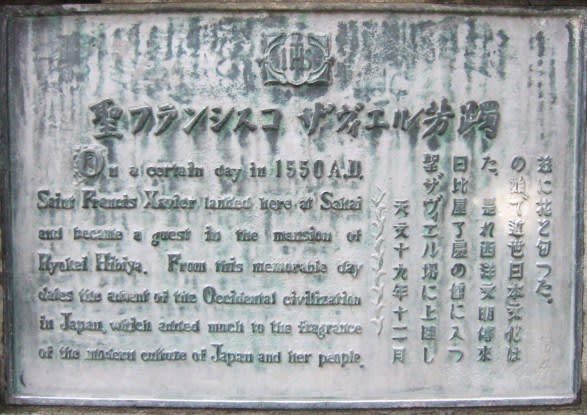 IHS
聖フランシスコ ザヴィエル芳躅
On a certain day in 1550 A.D.
Saint Francis Xavier landed here at Sakai
and became a guest in the mansion of
Ryokei Hibiya. From this memorable day
dates the advent of the Occidental civilization
in Japan, which added much to the fragrance
of the modern culture of Japan and her people.
天文十九年十二月
聖ザヴィエル堺に上陸し
日比屋了慶の館に入つ
た。是れ西洋文明傳來
の で近世日本文化は
茲に花と匂つた。